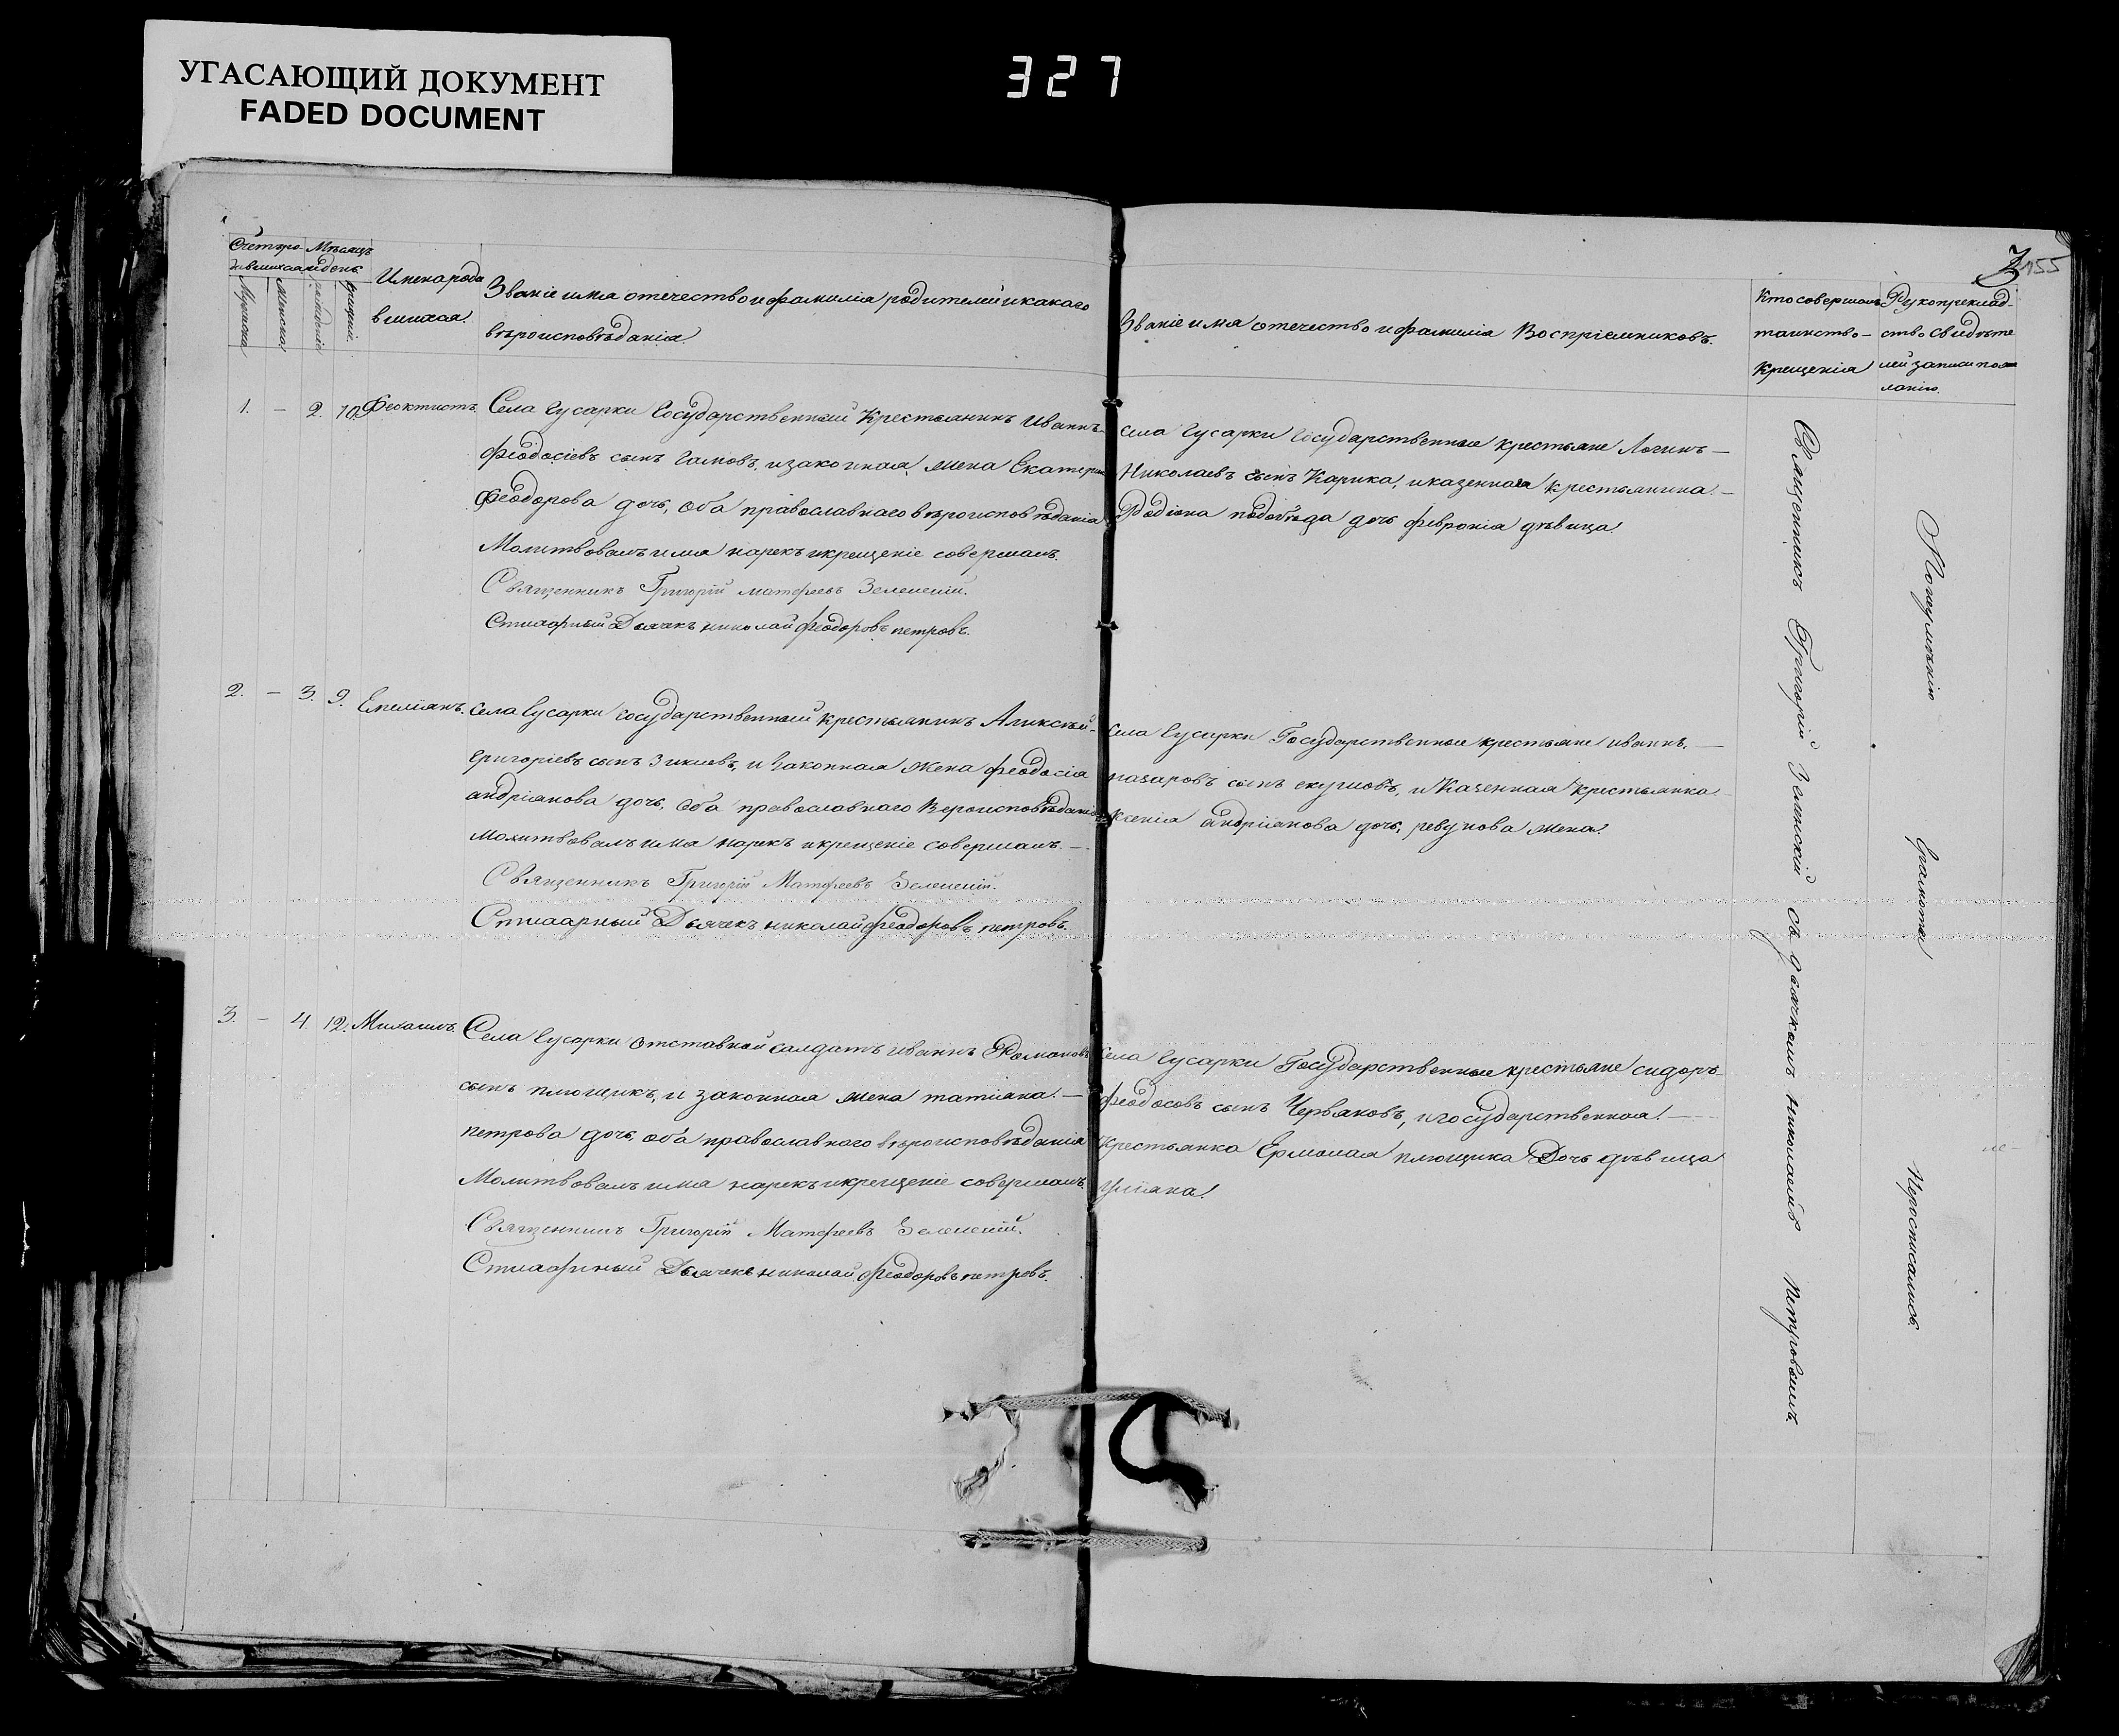 УГАСАЮЩИЙ ДОКУМЕНТ
FADED DOCUMENT
327
155
Счетъ ро-
дившихся
Мѣсяцъ
и день
Мужеска
Женска
рожденіе
крещеніе
Имена роди
вшихся.
Званіе имя отечество и фамилія родителей и какого
вѣроисповѣданія
Званіе имя отечество и фамилія Воспріемниковъ.
Кто совершалъ
таинство-
Крещенія
Рукоприклад-
ство свидѣте
лей записи по же
ланію.
1. — 2. 10. Феоктистъ.
Села Гусарки Государственный Крестьянинъ Иваннъ-
Феодосіевъ сынъ Гамовъ, и законная жена Екатерина
Феодорова дочь, оба православнаго вѣроисповѣданія
Молитвовалъ имя нарекъ и крещеніе совершалъ.
Священникъ Григорій Матфеевъ Зеленскій.
Стихарный Дьячекъ николай феодоровъ петровъ.
села Гусарки Государственные крестьяне Логинъ —
Николаевъ сынъ Карика, и казеннаго крестьянина. —
Родіона дочь февронія дѣвица.
2. — 3. 9. Емеліянъ.
села Гусарки государственный крестьянинъ Аликсѣй-
григоріевъ сынъ и законная жена феодосія
андріянова дочь, оба православнаго Вероисповѣданія
молитвовалъ имя нарекъ и крещеніе совершалъ. —
Священникъ Григорій Матфеевъ Зеленскій.
Стихарный Дьячекъ николай феодоровъ петровъ.
села Гусарки Государственные крестьяне иваннъ. —
назаровъ сынъ и Казенная крестьянка
Ксенія андріянова дочь, ревунова жена.
3. — 4. 12. Михаилъ.
Села Гусарки отставной салдатъ иваннъ Романовъ
сынъ плющикъ, и законная жена татіяна. —
петрова дочь, оба православнаго вѣроисповѣданія
Молитвовалъ имя нарекъ и крещеніе совершалъ.
Священникъ Григорій Матфеевъ Зеленскій.
Стихарный Дьячекъ николай феодоровъ петровъ.
села Гусарки Государственные крестьяне сидоръ-
феодосовъ сынъ Червяковъ, и государственная. —
крестьянка Ермолая плющика Дочь дѣвица
Уліяна.
Священникъ Григорій Зеленскій съ дьячкомъ николаемъ Петровымъ.
Грамоты